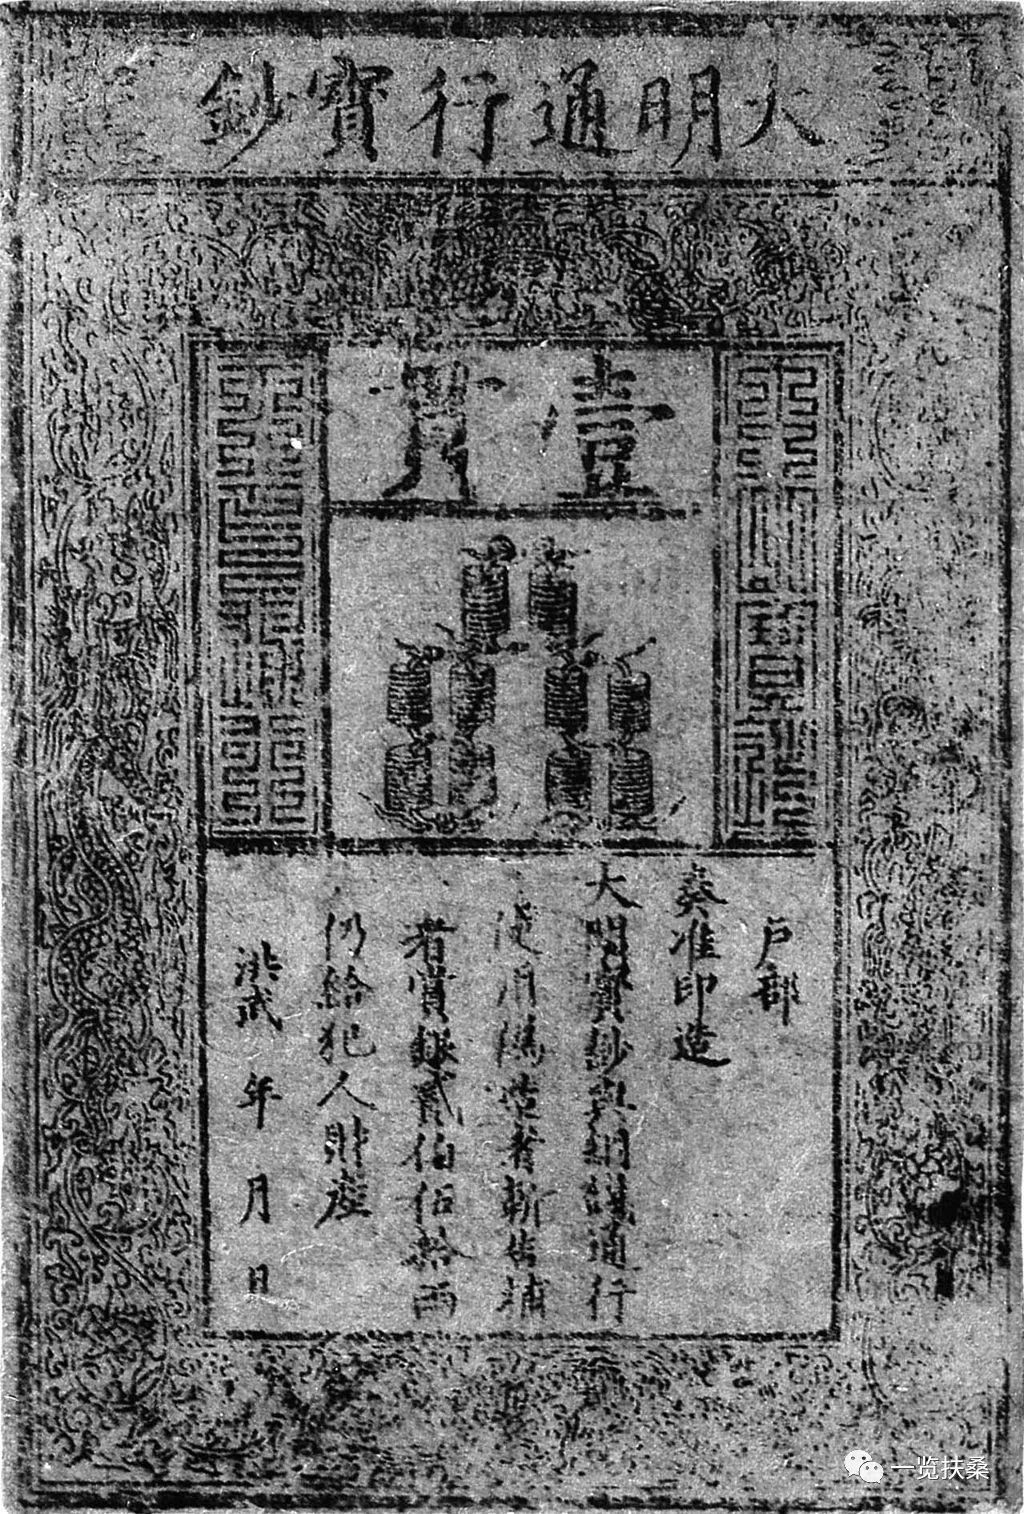 大明通行寶鈔
壹貫
大明寶鈔
天下通行
戶部
奏准印造
大明寶鈔與銅錢通行
使用偽造者斬告捕
者賞銀貳伯伍拾兩
仍給犯人財產
洪武 年 月 日
一览扶桑